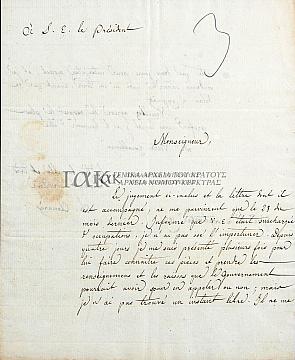 à S. E. le Président
3
Monseigneur,
ΓΕΝΙΚΑ ΑΡΧΕΙΑ ΤΟΥ ΚΡΑΤΟΥΣ
ΑΡΧΕΙΑ ΝΟΜΟΥ ΚΕΡΚΥΡΑΣ
Le jugement ci-inclus et la lettre dont il
est accompagné, ne me parvinrent que le 29 du
mois dernier. Informé que V. E. était surchargée
d'occupations, je n'ai pas osé l'importuner. Depuis
quatre jours je me suis présenté plusieurs fois pour
lui faire connaître ces pièces et prendre les
renseignemens et les raisons que le Gouvernement
pourrait avoir pour en appeler ou non; mais
je n'ai pas trouvé un instant libre. Il ne me